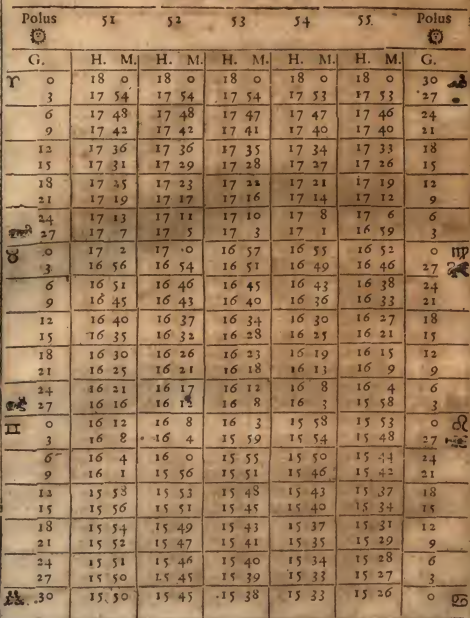 Polus 51 52 53 54 55. Polus
G. H. M. H. M. H. M. H. M. H. M. G.
♈ 0 18 0 18 0 18 0 18 0 18 0 30
3 17 54 17 54 17 54 17 53 17 53 27
6 17 48 17 48 17 47 17 47 17 46 24
9 17 42 17 42 17 41 17 40 17 40 21
12 17 36 17 36 17 35 17 34 17 33 18
15 17 31 17 29 17 28 17 27 17 26 15
18 17 25 17 23 17 22 17 21 17 19 12
21 17 19 17 17 17 16 17 14 17 12 9
24 17 13 17 11 17 10 17 8 17 6 6
27 17 7 17 5 17 3 17 1 16 59 3
♉ 0 17 2 17 0 16 57 16 55 16 52 0 ♍
3 16 56 16 54 16 51 16 49 16 46 27
6 16 51 16 46 16 45 16 43 16 38 24
9 16 45 16 43 16 40 16 36 16 33 21
12 16 40 16 37 16 34 16 30 16 27 18
15 16 35 16 32 16 28 16 25 16 21 15
18 16 30 16 26 16 23 16 19 16 15 12
21 16 25 16 21 16 18 16 13 16 9 9
24 16 21 16 17 16 12 16 8 16 4 6
27 16 16 16 12 16 8 16 3 15 58 3
♊ 0 16 12 16 8 16 3 15 58 15 53 0 ♌
3 16 8 16 4 15 59 15 54 15 48 27
6 16 4 16 0 15 55 15 50 15 44 24
9 16 1 15 56 15 51 15 46 15 42 21
12 15 58 15 53 15 48 15 43 15 37 18
15 15 56 15 51 15 45 15 40 15 34 15
18 15 54 15 49 15 43 15 37 15 31 12
21 15 52 15 47 15 41 15 35 15 29 9
24 15 51 15 46 15 40 15 34 15 28 6
27 15 50 15 45 15 39 15 33 15 27 3
30 15 50 15 45 15 38 15 33 15 26 0 ♋